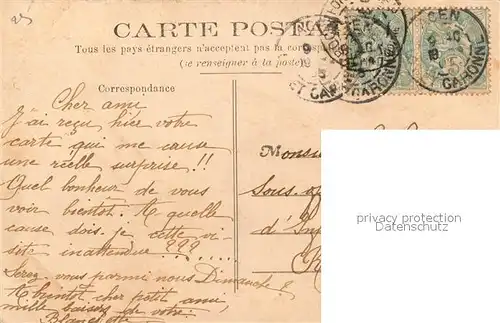 25
CARTE POSTA
Tous les pays étrangers n'acceptent pas la corres
(se renseigner à la poste)
Correspondance
Cher ami
J'ai reçu hier votre
carte qui me cause
une réelle surprise!!
Quel bonheur de vous
voir bientôt. A quelle
cause dois-je cette vi-
site inattendue ???
Serez-vous parmi nous Dimanche?
A bientôt cher petit ami
mille baisers de votre
Blanchette
Monsieu
Sous-
d'In
privacy protection
Datenschutz
GEN
GARONNE
ET GARONNE